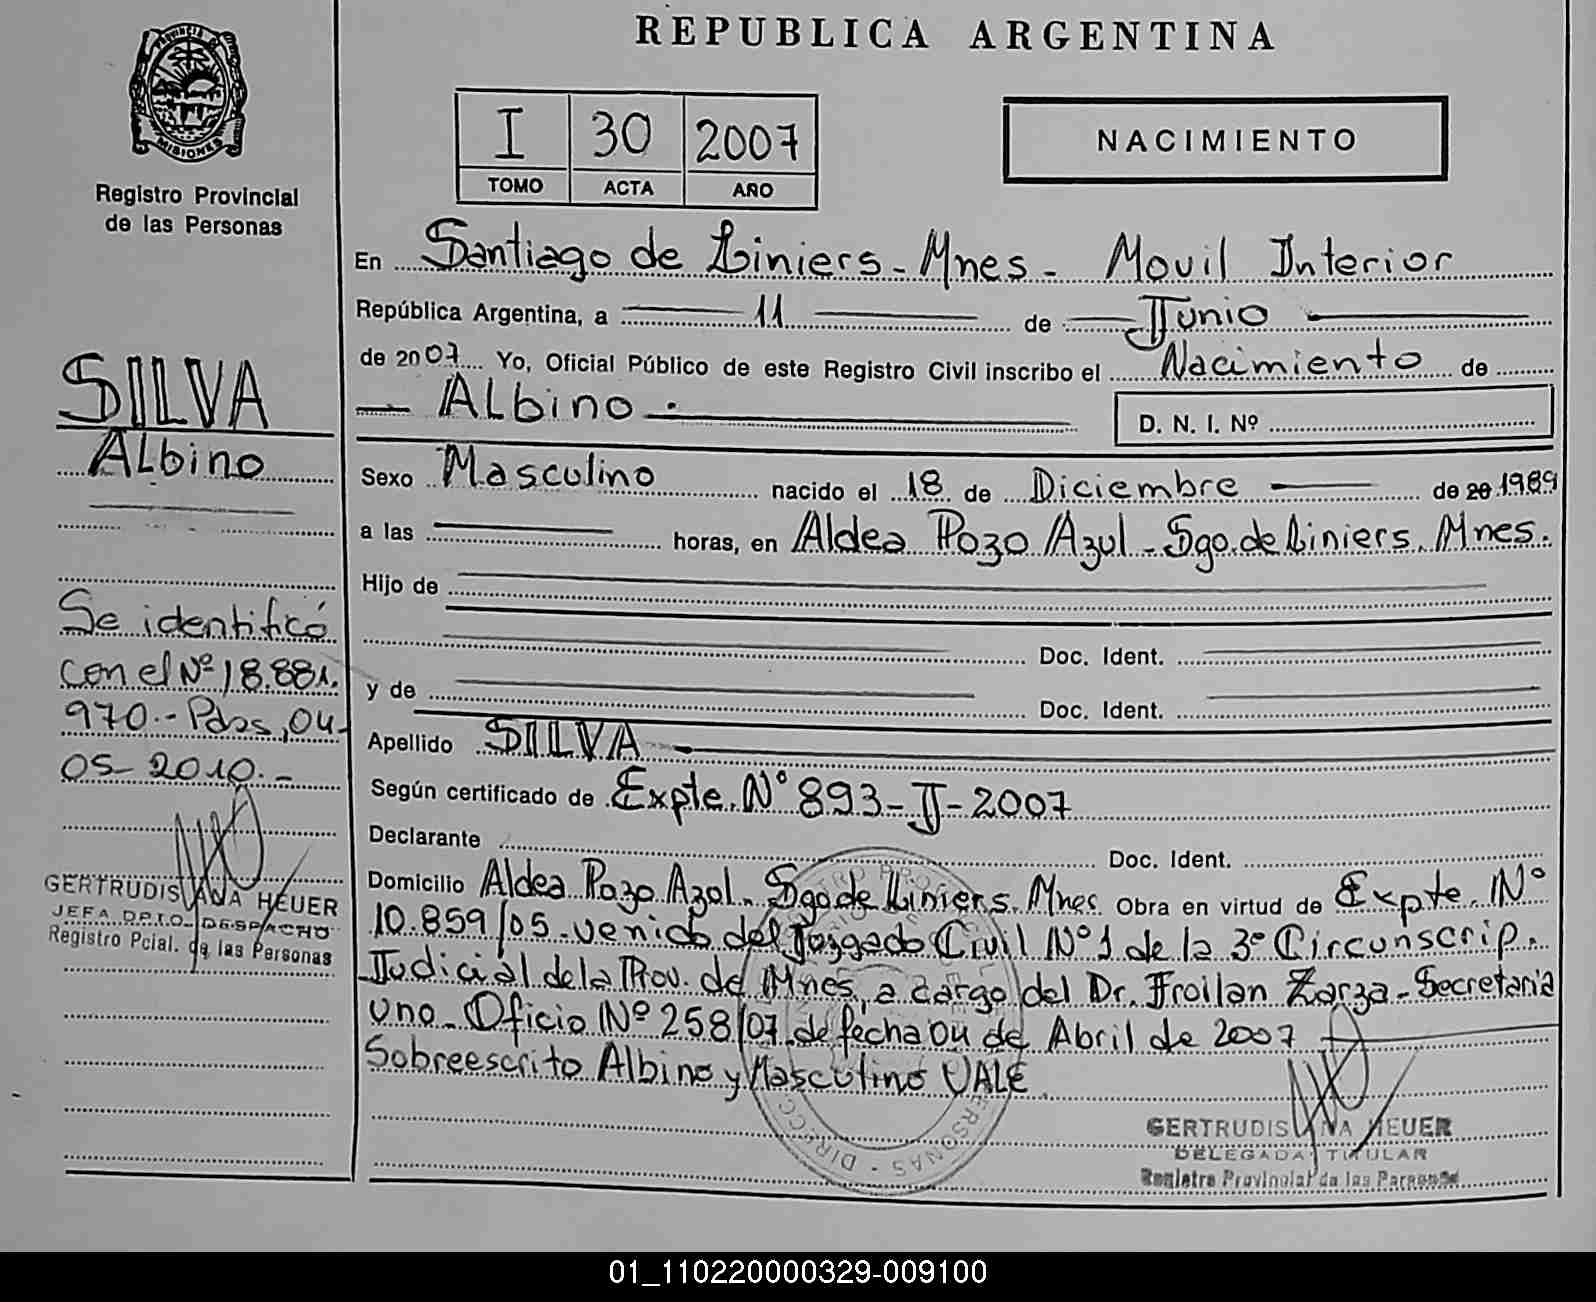 REPUBLICA ARGENTINA
PROVINCIA DE
MISIONES
Registro Provincial
de las Personas
I 30 2007
TOMO ACTA AÑO
NACIMIENTO
En Santiago de Liniers - Mnes - Movil Interior
República Argentina, a 11 de Junio
de 2007 Yo, Oficial Público de este Registro Civil inscribo el Nacimiento de
Albino.
D. N. I. Nº
Sexo Masculino nacido el 18 de Diciembre de 20 1989
a las horas, en Aldea Pozo Azul - Sgo. de Liniers. Mnes.
Hijo de
Doc. Ident.
y de Doc. Ident.
Apellido SILVA
Según certificado de Expte. Nº 893-J-2007
Declarante Doc. Ident.
Domicilio Aldea Pozo Azul. Sgo de Liniers. Mnes Obra en virtud de Expte. Nº
10.859/05 venido del Juzgado Civil Nº 1 de la 3º Circunscrip.
Judicial de la Prov. de Mnes, a cargo del Dr. Froilan Zarza - Secretaria
uno - Oficio Nº 258/07 de fecha 04 de Abril de 2007
Sobreescrito Albino y Masculino VALE
GERTRUDIS ANA HEUER
DELEGADA TITULAR
Registro Provincial de las Personas
SILVA
Albino
Se identificó
con el Nº 18.881.
970.- Pdas, 04-
05-2010.-
GERTRUDIS ANA HEUER
JEFA DPTO. DESPACHO
Registro Pcial. de las Personas
01_110220000329-009100